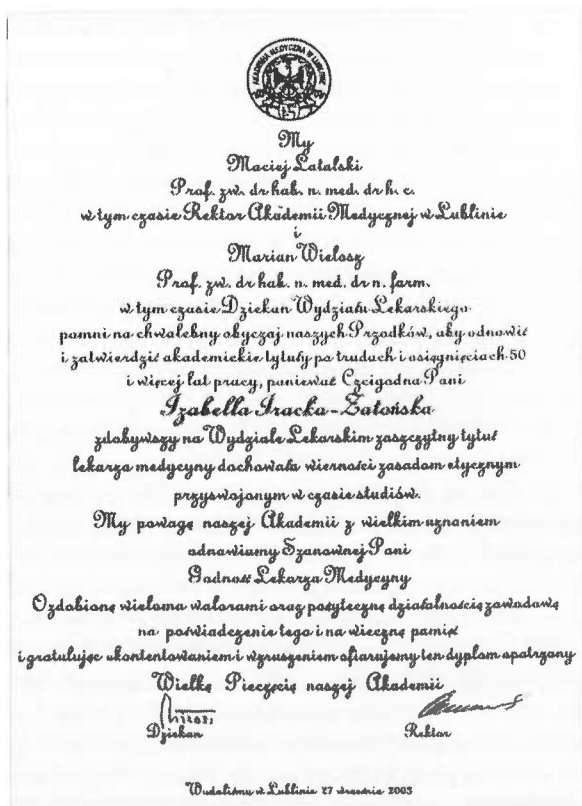 AKADEMIA MEDYCZNA W LUBLINIE
My
Maciej Latalski
Prof. zw. dr hab. n. med. dr h. c.
w tym czasie Rektor Akademii Medycznej w Lublinie
i
Marian Wielosz
Prof. zw. dr hab. n. med. dr n. farm.
w tym czasie Dziekan Wydziału Lekarskiego
pomni na chwalebny obyczaj naszych Przodków, aby odnowić
i zatwierdzić akademickie tytuły po trudach i osiągnięciach 50
i więcej lat pracy, ponieważ Czcigodna Pani
Izabella Iracka-Zatońska
zdobywszy na Wydziale Lekarskim zaszczytny tytuł
lekarza medycyny dochowała wierności zasadom etycznym
przyswojonym w czasie studiów.
My powagę naszej Akademii z wielkim uznaniem
odnawiamy Szanownej Pani
Godność Lekarza Medycyny
Ozdobionę wieloma walorami oraz pożytecznę działalnościę zawodowę
na poświadczenie tego i na wiecznę pamięć
i gratulując ukontentowaniem i wzruszeniem ofiarujemy ten dyplom opatrzony
Wielkę Pieczęcię naszej Akademii
Dziekan Rektor
Wydaliśmy w Lublinie 27 września 2003